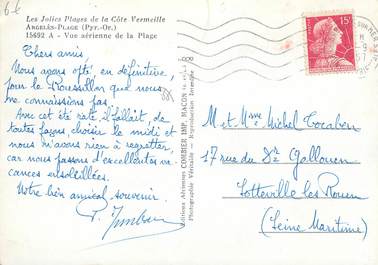 6€
Les Jolies Plages de la Côte Vermeille
ARGELÈS-PLAGE (PYR.-OR.)
15692 A - Vue aérienne de la Plage
Chers amis,
Nous avons opté, en définitive,
pour le Roussillon que nous
ne connaissions pas.
Avec cet été raté, il fallait, de
toutes façons, choisir le midi et
nous n'avons rien à regretter,
car nous passons d'excellentes va-
cances ensoleillées.
Votre bien amical souvenir.
Editions Aériennes COMBIER IMP. MACON
Photographie Véritable - Reproduction Interdite
15F
M et Mme Michel
17 rue du Dr Gallouen
Sotteville les Rouen
(Seine Maritime)